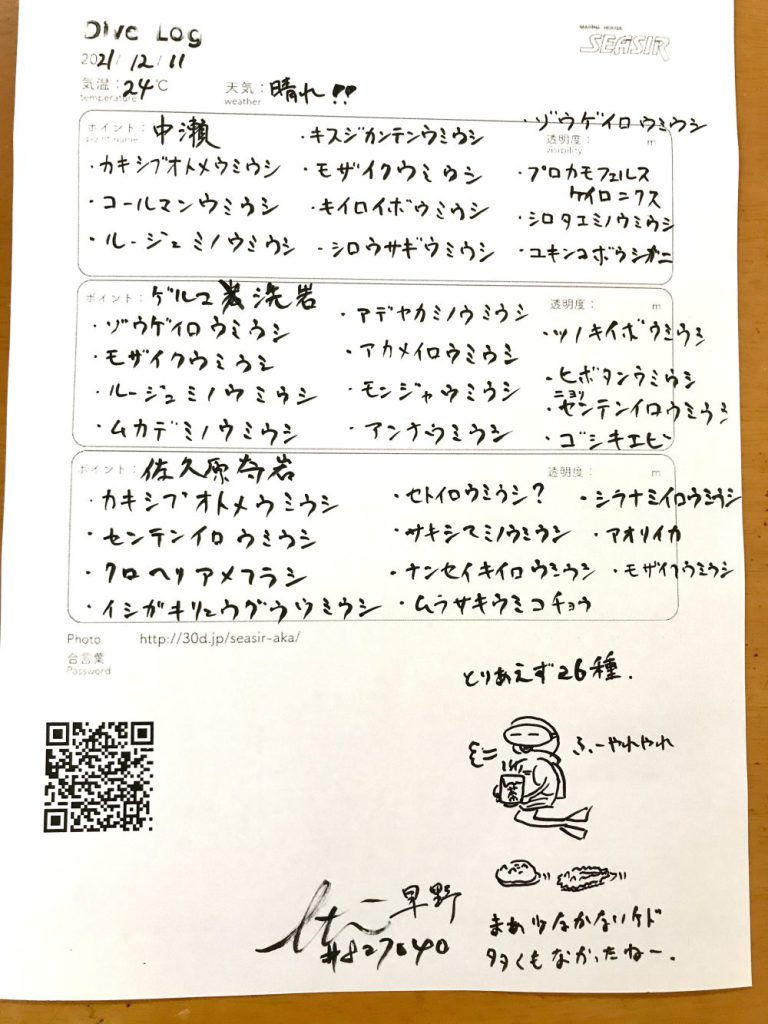 Dive Log
MARINE HOUSE
SEASIR
2021/12/11
気温：24℃
temperature
天気：晴れ!!
weather
ポイント：中瀬
point name
透明度： m
visibility
・カキシブオトメウミウシ
・コールマンウミウシ
・ルージュミノウミウシ
・キスジカンテンウミウシ
・モザイクウミウシ
・キイロイボウミウシ
・シロウサギウミウシ
・ゾウゲイロウミウシ
・プロカモフェルス
ケイロニクス
・シロタエミノウミウシ
・ユキンコボウシガニ
ポイント：ゲルマ 洗岩
透明度： m
・ゾウゲイロウミウシ
・モザイクウミウシ
・ルージュミノウミウシ
・ムカデミノウミウシ
・アデヤカミノウミウシ
・アカメイロウミウシ
・モンジャウミウシ
・アンナウミウシ
・ツノキイボウミウシ
・ヒボタンウミウシ
ニヨリ
・センテンイロウミウシ
・ゴシキエビ
ポイント：佐久原奇岩
透明度： m
・カキシブオトメウミウシ
・センテンイロウミウシ
・クロヘリアメフラシ
・イシガキリュウグウウミウシ
・セトイロウミウシ？
・サキシマミノウミウシ
・ナンセイキイロウミウシ
・ムラサキウミコチョウ
・シラナミイロウミウシ
・アオリイカ
・モザイクウミウシ
Photo http://30d.jp/seasir-aka/
合言葉
Password
とりあえず26種．
ふーやれやれ
茶
早野
#827640
まぁ少なかないケド
多くもなかったねー．